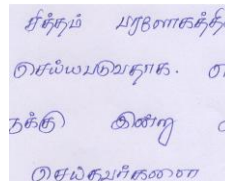 சித்தம் பரலோகத்தி
செய்யபடுவதாக.
நக்கு இன்று
செய்தவர்களை